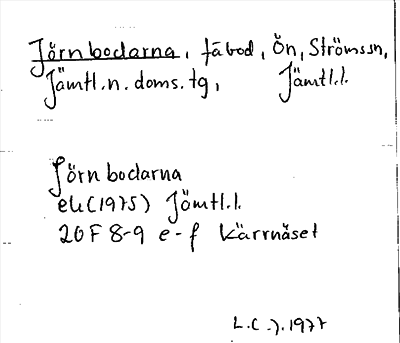 Jörnbodarna, fäbod, Ön, Strömssn,
Jämtl.n. doms.tg, Jämtl.l.
Jörnbodarna
ek(1975) Jämtl.l.
20F 8-9 e-f Kärrnäset
L.C.J.1977